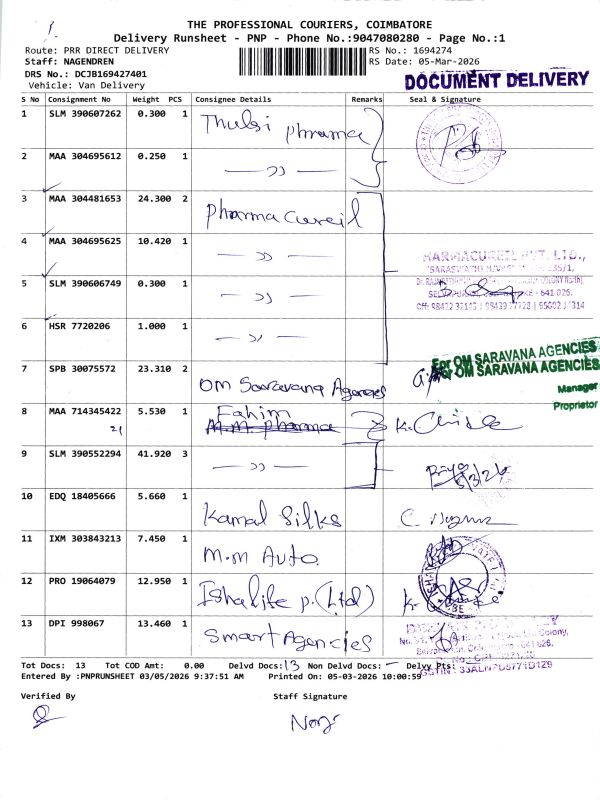 THE PROFESSIONAL COURIERS, COIMBATORE
Delivery Runsheet - PNP - Phone No.:9047080280 - Page No.:1
Route: PRR DIRECT DELIVERY RS No.: 1694274
Staff: NAGENDREN RS Date: 05-Mar-2026
DRS No.: DCJB169427401
Vehicle: Van Delivery
DOCUMENT DELIVERY
S No Consignment No Weight PCS Consignee Details Remarks Seal & Signature
1 SLM 390607262 0.300 1 Thulsi pharama
2 MAA 304695612 0.250 1 — " —
3 MAA 304481653 24.300 2 pharmacureil
4 MAA 304695625 10.420 1 — " —
PHARMACUREIL PVT. LTD.,
5 SLM 390606749 0.300 1 — " —
641 026.
6 HSR 7720206 1.000 1 — " —
For OM SARAVANA AGENCIES
For OM SARAVANA AGENCIES
7 SPB 30075572 23.310 2 OM Saravana Agencies
Manager
Proprietor
8 MAA 714345422 5.530 1 Fahim
21 M.M pharma
9 SLM 390552294 41.920 3 — " —
10 EDQ 18405666 5.660 1 Kamal Silks
11 IXM 303843213 7.450 1 M.M Auto.
12 PRO 19064079 12.950 1 Ishalife p.(Ltd)
13 DPI 998067 13.460 1 Smart Agencies
Tot Docs: 13 Tot COD Amt: 0.00 Delvd Docs: 13 Non Delvd Docs: — Delvy Pts:
Entered By :PNPRUNSHEET 03/05/2026 9:37:51 AM Printed On: 05-03-2026 10:00:59
Verified By Staff Signature